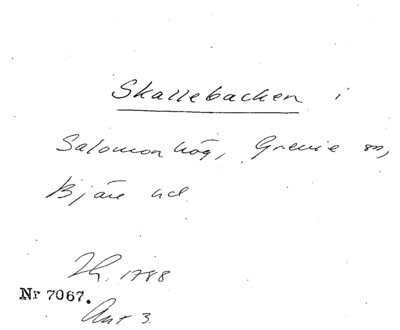 Skallebacken i
Salomonhög, Grevie sn,
Bjäre hd
Lh. 1788
Nr 7067.
Ant 3.